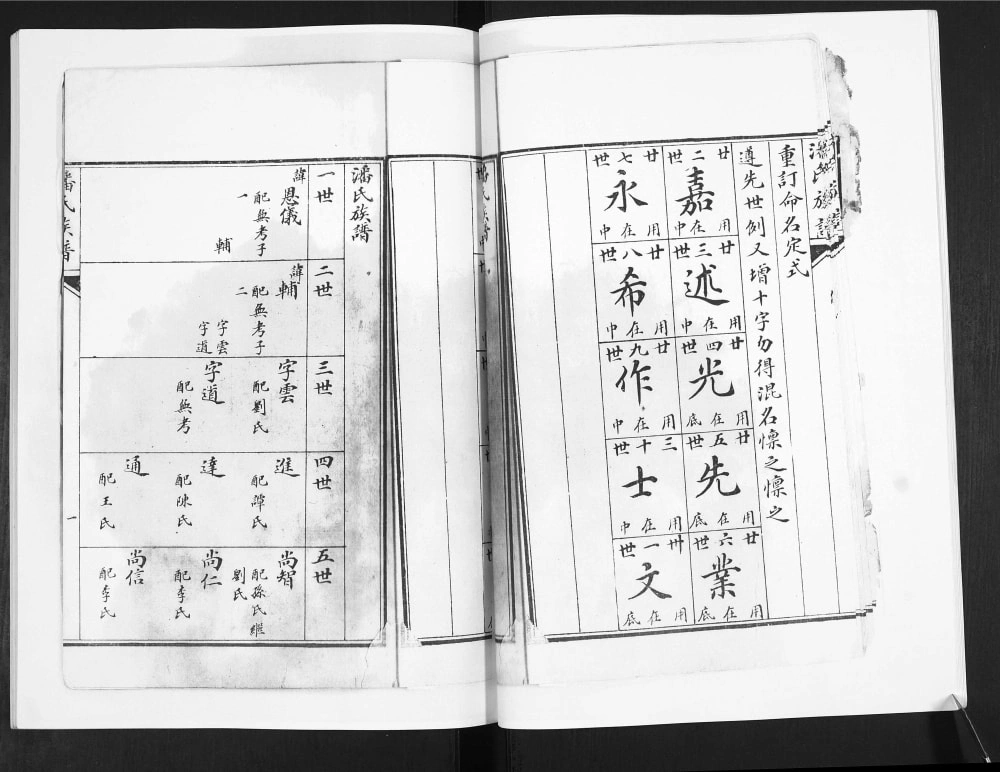 潘氏族譜
重訂命名定式
遵先世例又增十字勿得混名懍之懍之
廿二世
嘉
用在中
廿三世
述
用在中
廿四世
光
用在底
廿五世
先
用在底
廿六世
業
用在底
廿七世
永
用在中
廿八世
希
用在中
廿九世
作
用在中
三十世
士
用在中
卅一世
文
用在底
潘氏族譜
一世
諱恩儀
配無考子
一
輔
二世
諱輔
配無考子
二
字雲
字道
三世
字雲
配劉氏
字道
配無考
四世
進
配譚氏
達
配陳氏
通
配王氏
五世
尚智
配孫氏繼
劉氏
尚仁
配李氏
尚信
配李氏
一
潘氏族譜